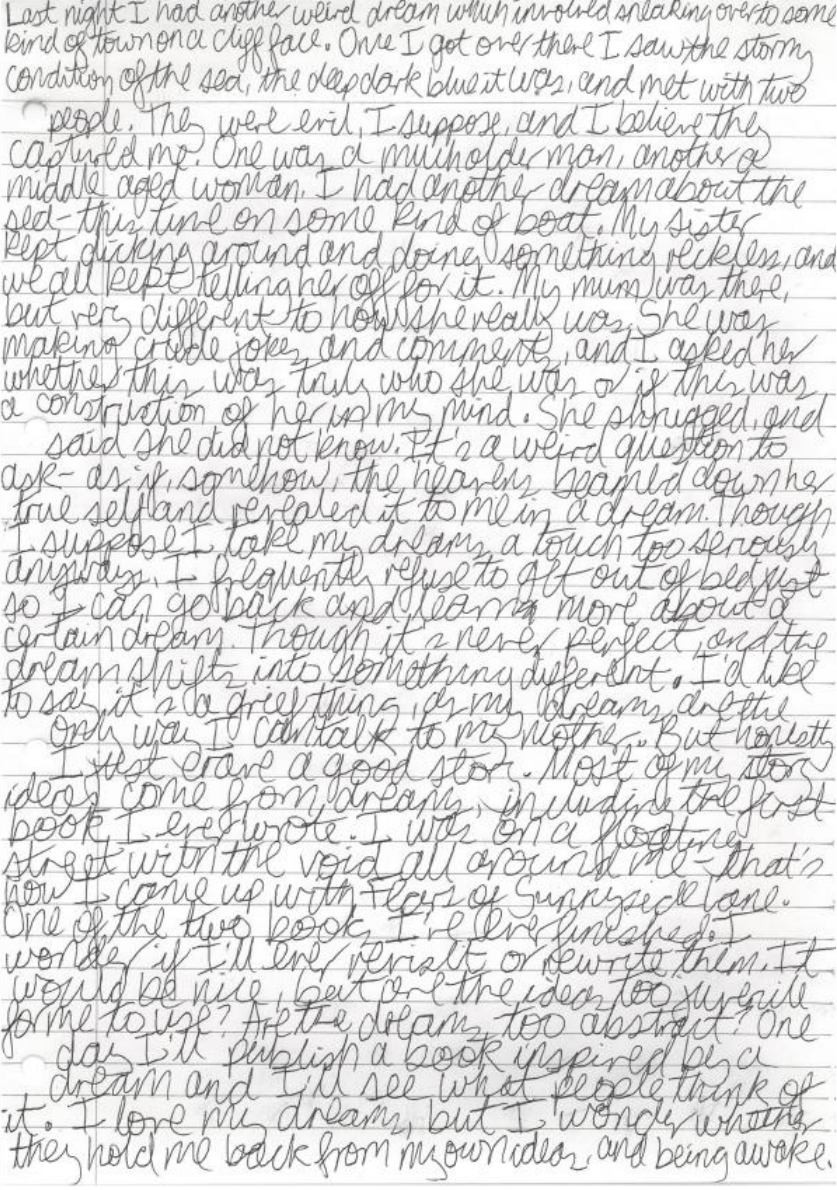 Last night I had another weird dream which involved sneaking over to some
kind of town on a cliff face. Once I got over there I saw the stormy
condition of the sea, the deep dark blue it was, and met with two
people. They were evil, I suppose, and I believe they
captured me. One was a much older man, another a
middle aged woman. I had another dream about the
sea - this time on some kind of boat. My sister
kept dicking around and doing something reckless, and
we all kept telling her off for it. My mum was there,
but very different to how she really was. She was
making crude jokes and comments, and I asked her
whether this was truly who she was or if this was
a construction of her in my mind. She shrugged, and
said she did not know. It's a weird question to
ask - as if, somehow, the heavens beamed down her
true self and revealed it to me in a dream. Though
I suppose I take my dreams a touch too seriously
anyways. I frequently refuse to get out of bed just
so I can go back and learn more about a
certain dream. Though it's never perfect, and the
dream shifts into something different. I'd like
to say it's a grief thing, as my dreams are the
only way I can talk to my mother. But honestly
I just crave a good story. Most of my story
ideas come from dreams, including the first
book I ever wrote. I was on a floating
street with the void all around me - that's
how I came up with Fears of Sunnyside Lane.
One of the two books I've ever finished. I
wonder if I'll ever revisit or rewrite them. It
would be nice, but are the ideas too juvenile
for me to use? Are the dreams too abstract? One
day I'll publish a book inspired by a
dream and I'll see what people think of
it. I love my dreams, but I wonder whether
they hold me back from my own ideas, and being awake.